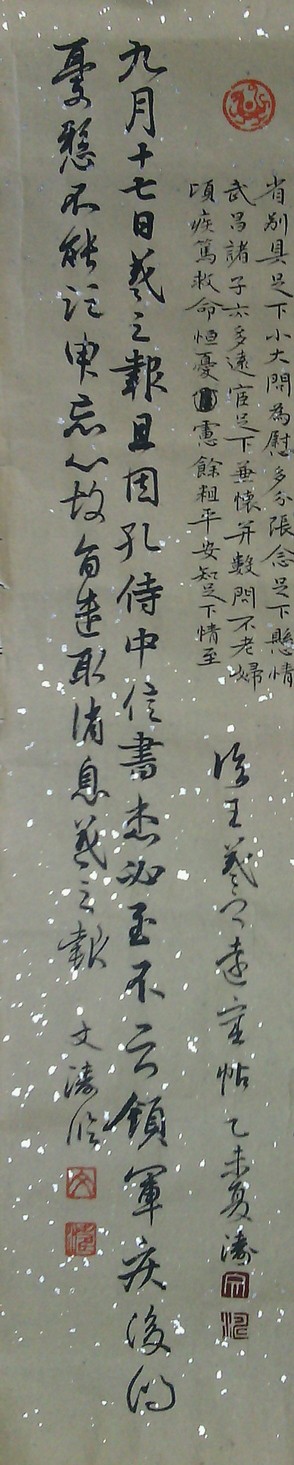 省别具足下小大問為慰多分張念足下懸情
武昌諸子亦多遠宦足下兼懷并數問不老婦
頃疾篤救命恒憂慮餘粗平安知足下情至
臨王羲之遠宦帖 乙未夏濤
九月十七日羲之報且因孔侍中信書想必至不云領軍疾後問
憂懸不能須臾忘心故旨遣取消息羲之報
文濤臨